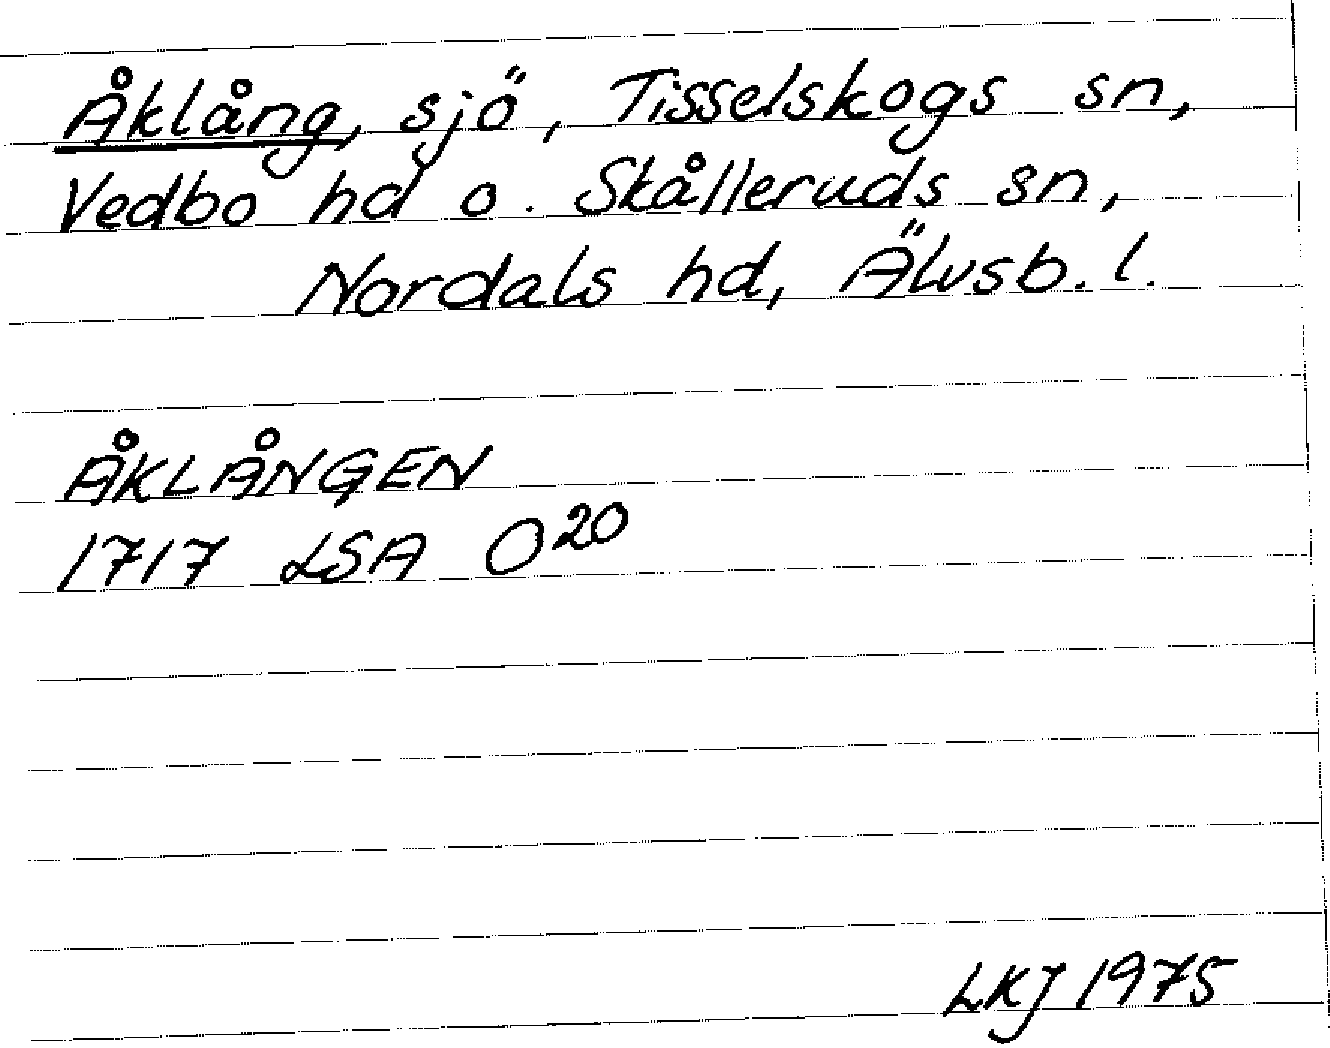 Åklång, sjö, Tisselskogs sn,
Vedbo hd o. Skålleruds sn,
Nordals hd, Älvsb. l.
ÅKLÅNGEN
1717 LSA O 20
LKJ 1975